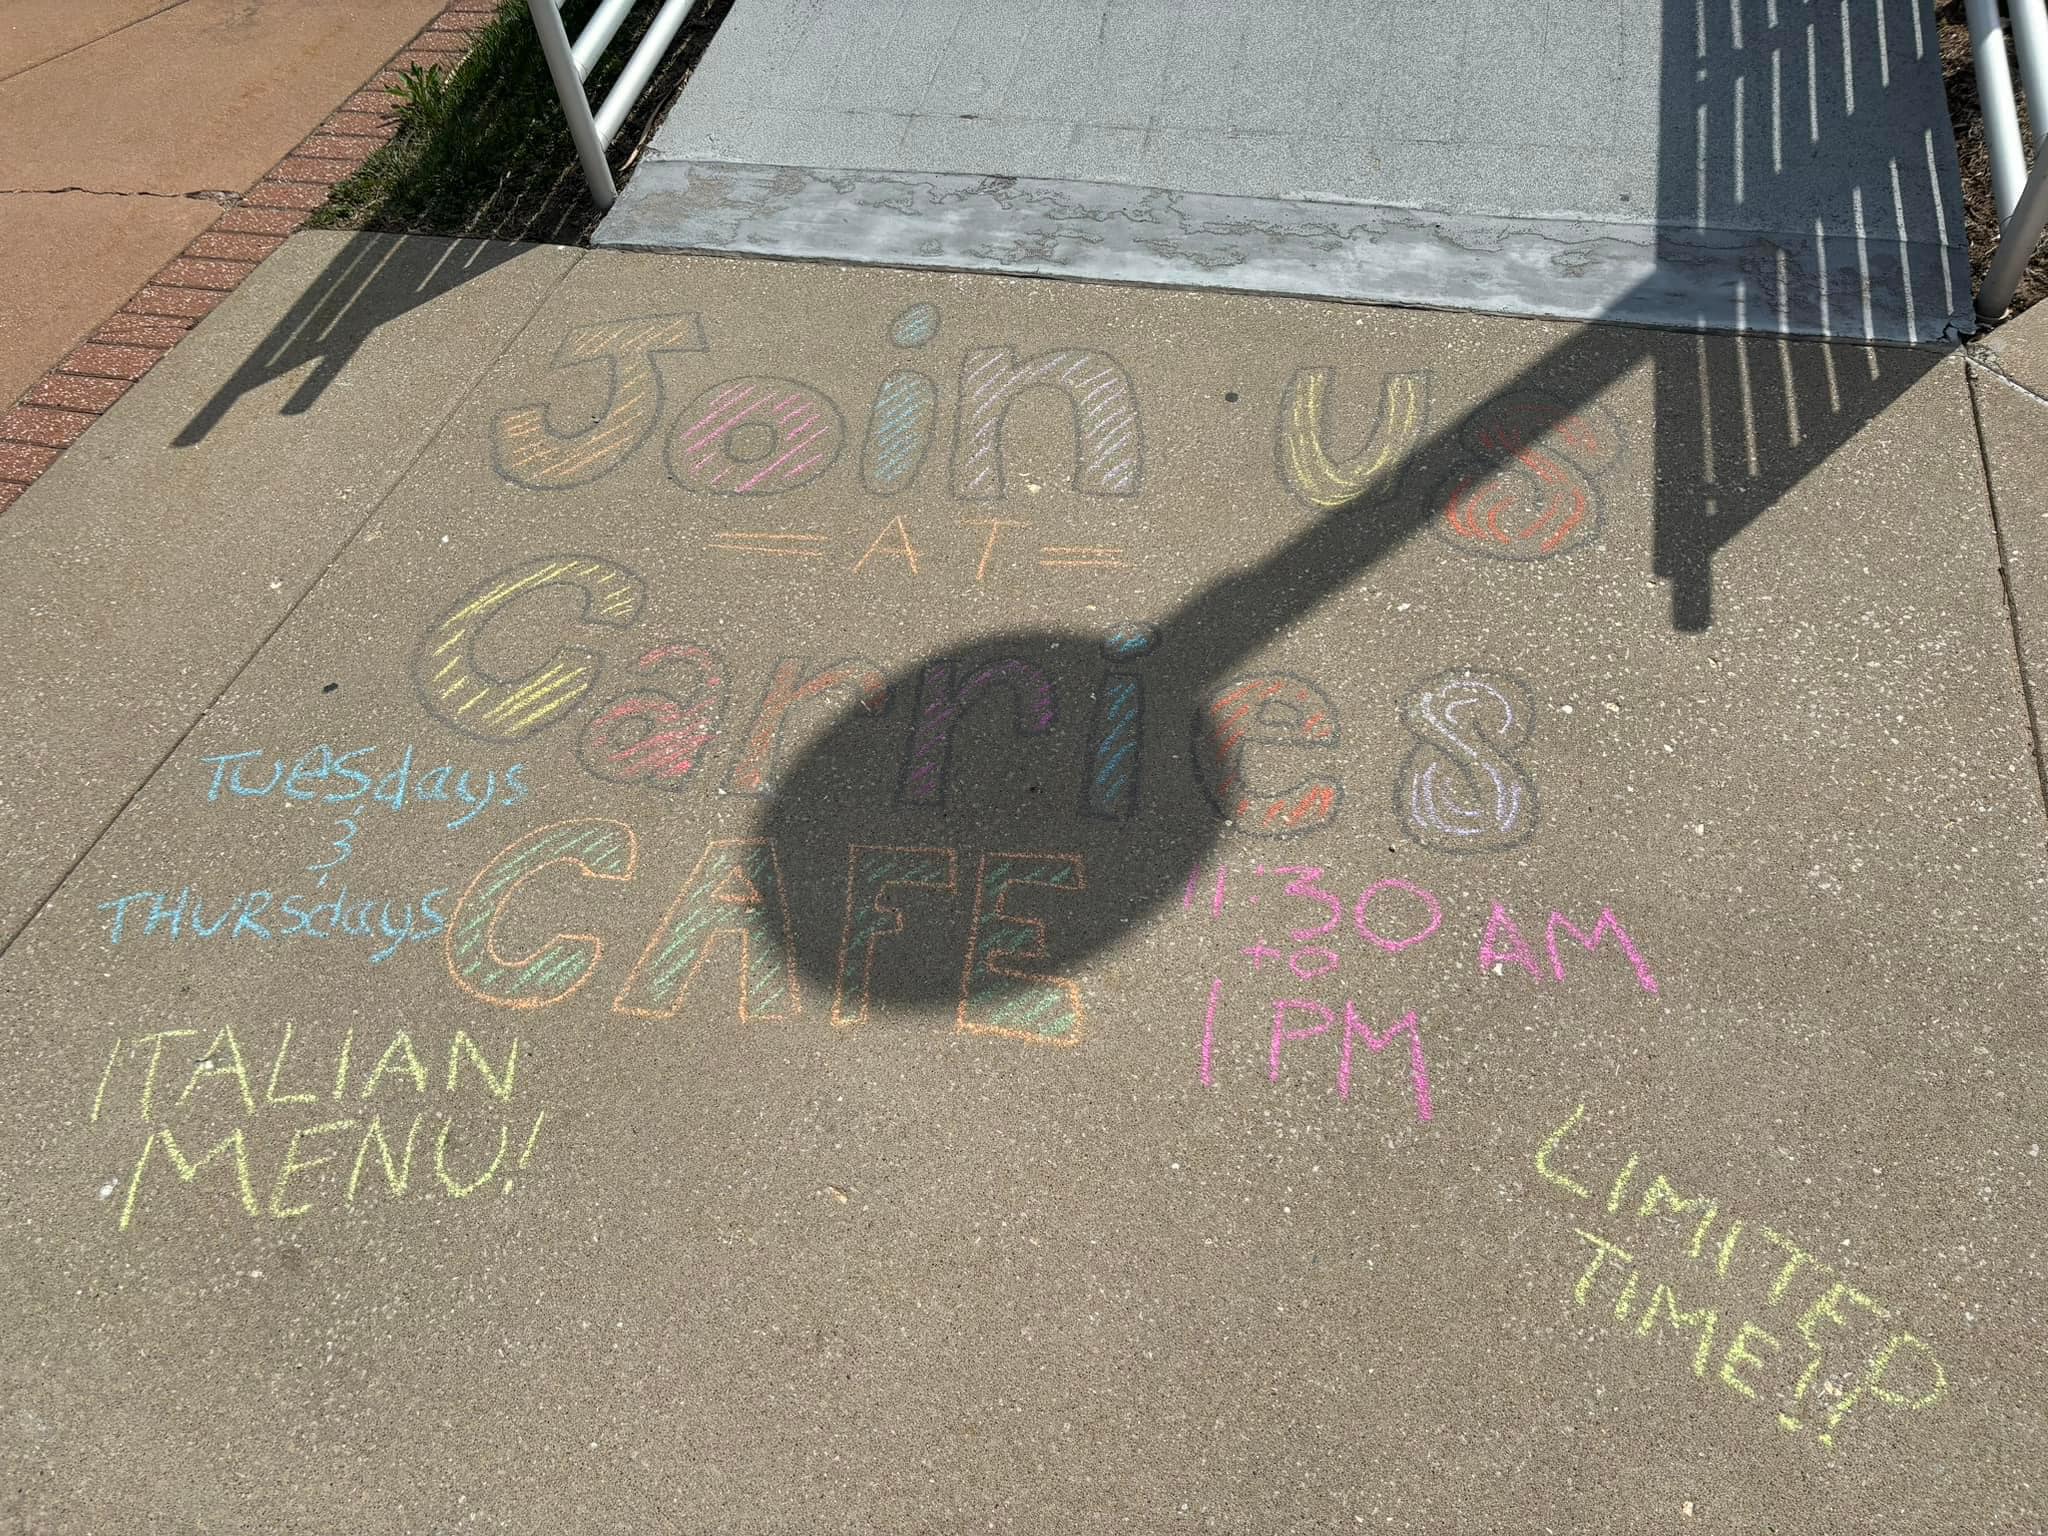 Join us
= AT =
Carries
Tuesdays
&
THURSdays
CAFE
11:30 AM
to
1 PM
ITALIAN
MENU!
LIMITED
TIME!!